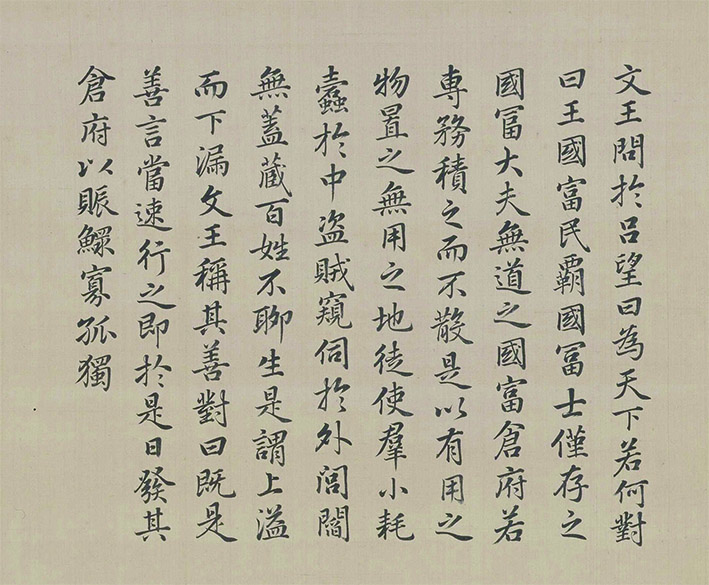 文王問於呂望曰為天下若何對
曰王國富民覇國冨士僅存之
國冨大夫無道之國富倉府若
專務積之而不散是以有用之
物置之無用之地徒使羣小耗
蠹於中盗賊窺伺於外閭閻
無蓋蔵百姓不聊生是謂上溢
而下漏文王稱其善對曰既是
善言當速行之即於是日發其
倉府以賑鰥寡孤獨